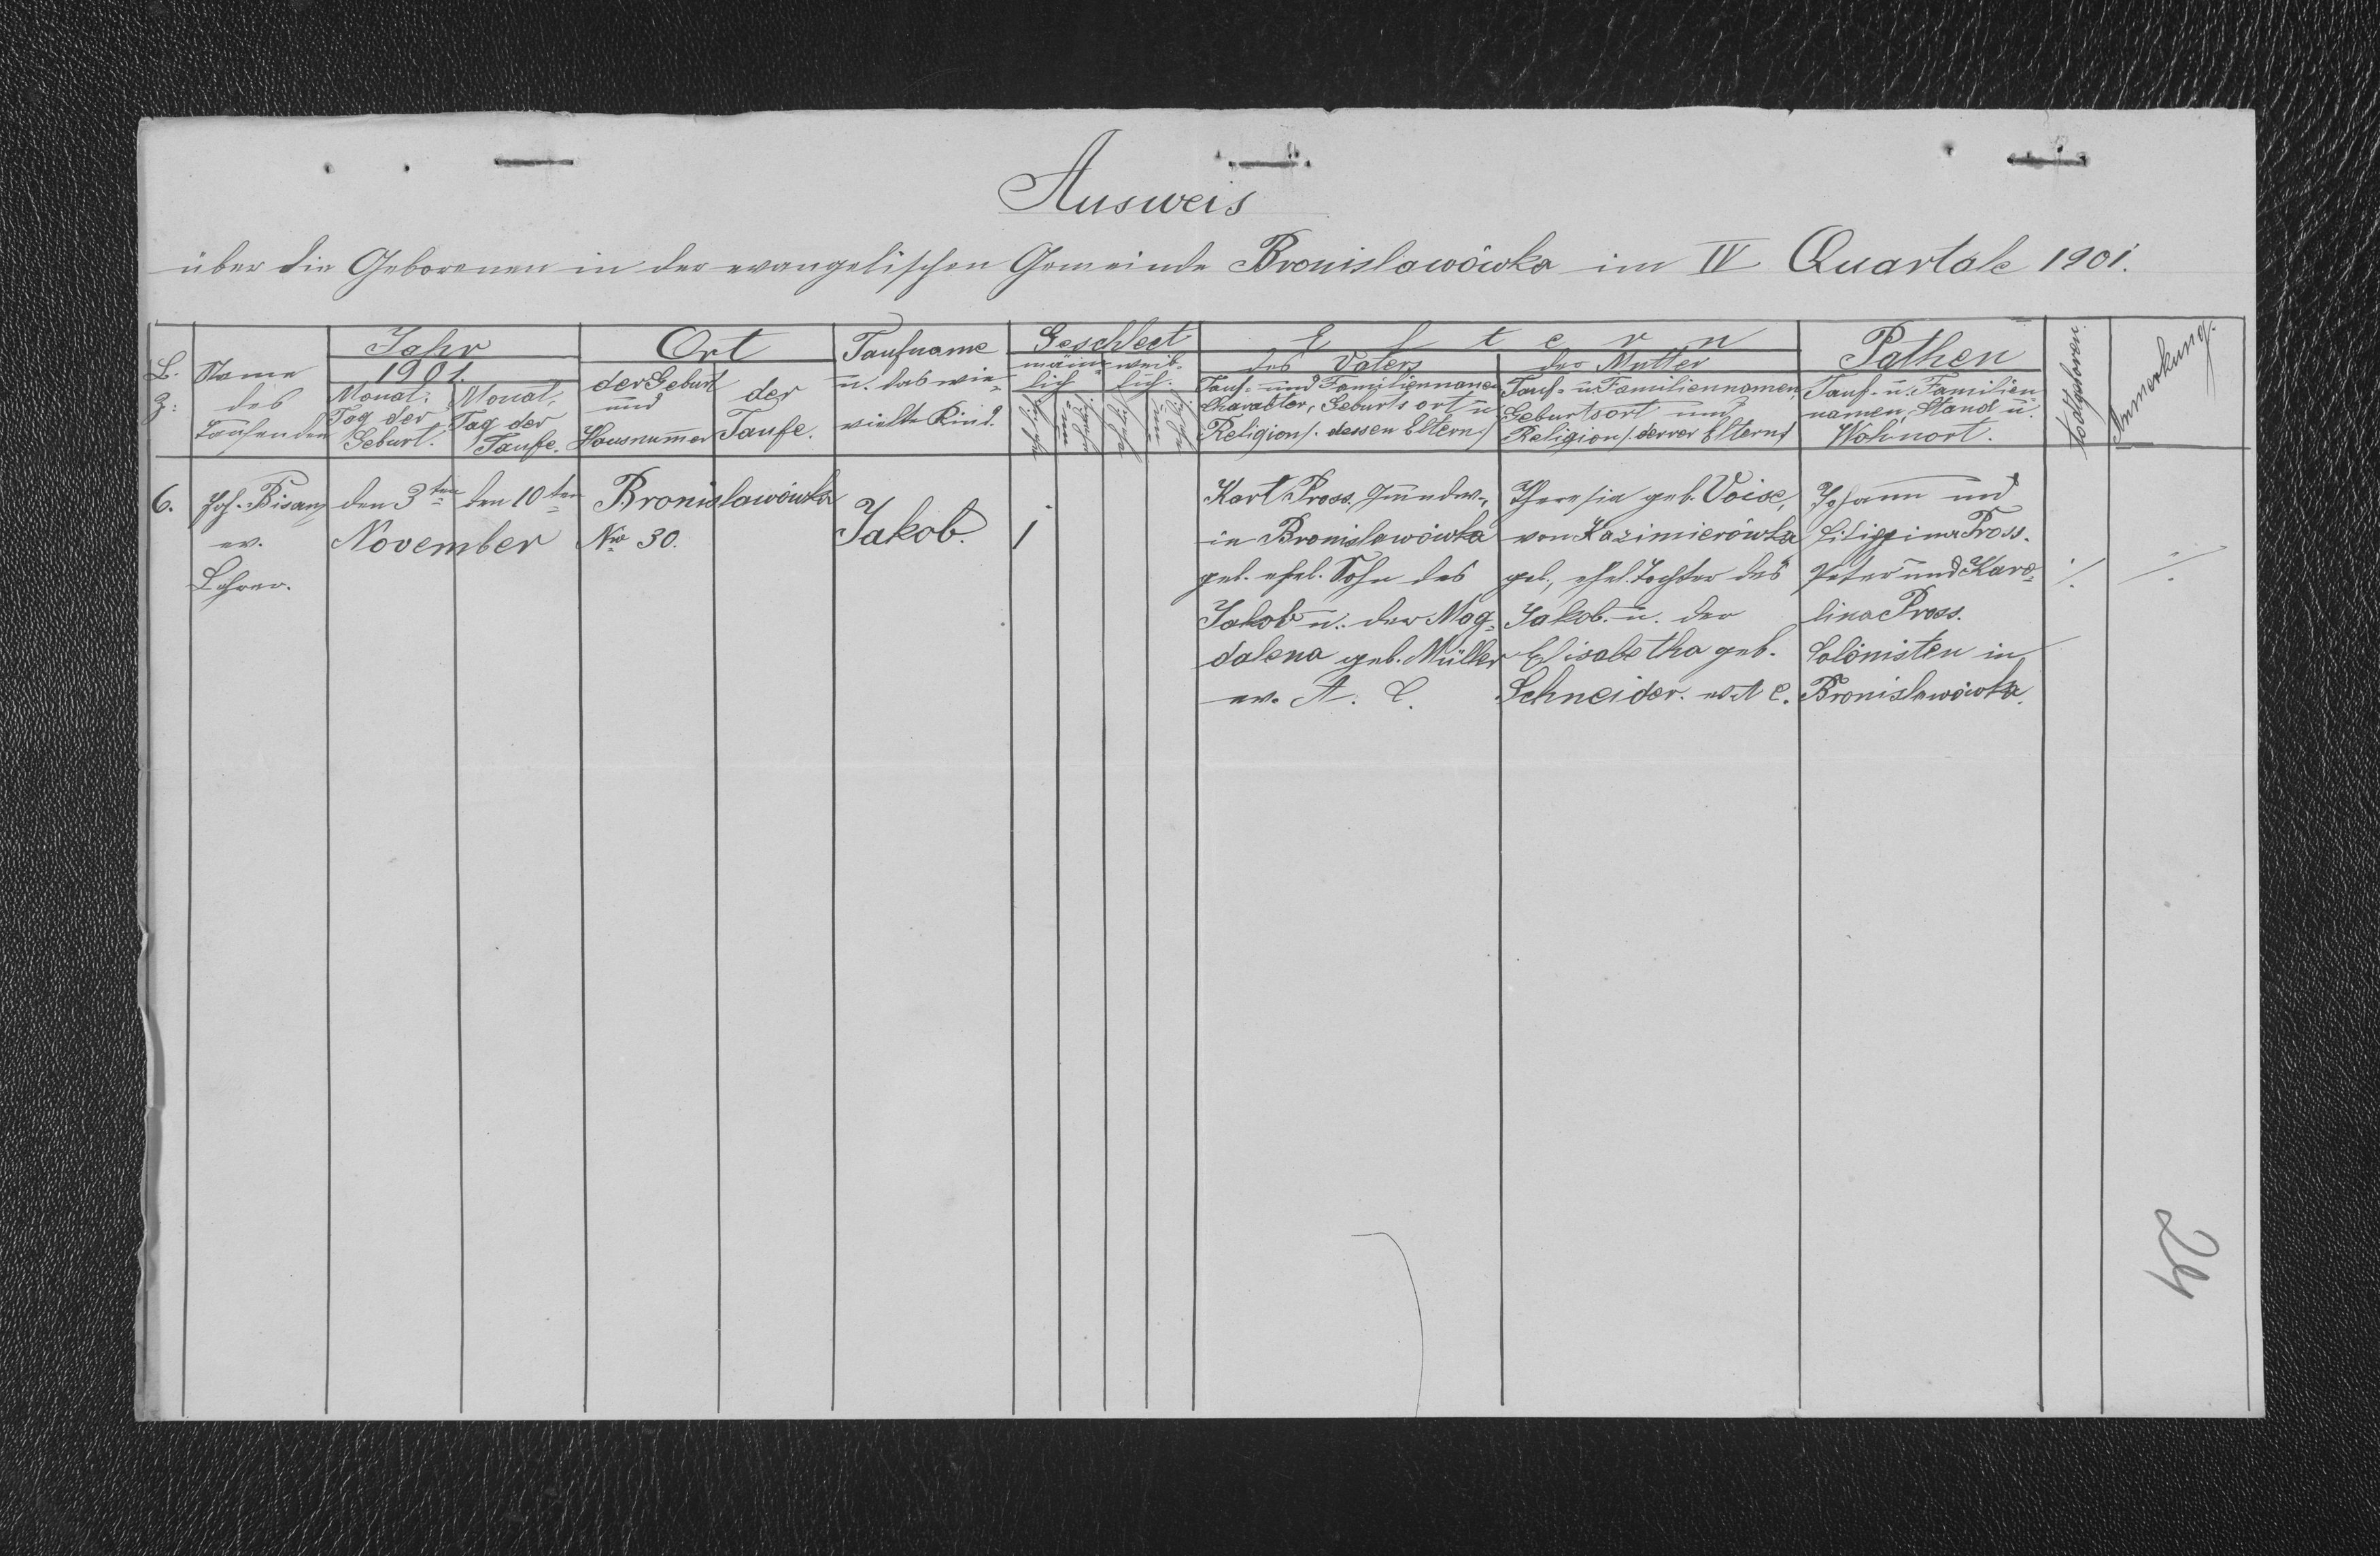 Ausweis
über die Geborenen in der evangelischen Gemeinde Bronislawówka im IV Quartale 1901.
L. Z:
Name des Taufenden
Jahr 1901.
Monat. Tag der Geburt.
Monat, Tag der Taufe.
Ort
der Geburt und Hausnummer
der Taufe.
Taufname u. das wievielte Kind.
Geschlect
männlich
weiblich.
Eltern
des Vaters
Tauf- und Familiennamen Charakter, Geburtsort u Religion /. dessen Eltern /
der Mutter
Tauf- u. Familiennamen, Geburtsort und Religion /. derer Eltern /
Pathen
Tauf- u. Familiennamen, Stand u. Wohnort.
todtgeboren.
Anmerkung.
6.
Joh. Bisanz
ev.
Lehrer.
den 3ten
den 10ten
November
Bronislawówka
Nro 30.
Jakob.
1
Karl Pross,
in Bronislawówka
geb. ehel. Sohn des
Jakob u. der Mag-
dalena geb. Müller
ev. A. C.
Theresia geb. Voise,
von Kazimierówka
geb., ehel. Tochter des
Jakob u. der
Elisabetha geb.
Schneider. ev. A C.
Johann und
Filippina Pross.
Peter und Karo-
lina Pross.
Colonisten in
Bronislawówka.
./.
./.
24